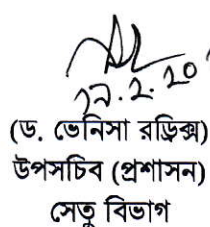 (ড. ভেনিসা রড্রিক্স)
উপসচিব (প্রশাসন)
সেতু বিভাগ